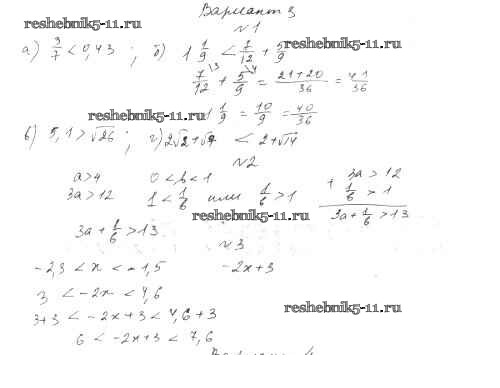 Вариант 3
reshebnik5-11.ru
№1
а) 3/7 < 0,43 ; б) 1 1/9 < 7/12 + 5/9
reshebnik5-11.ru
7/12 \3 + 5/9 \4 = 21+20/36 = 41/36
reshebnik5-11.ru
1 1/9 = 10/9 = 40/36
в) 5,1 > √26 ; г) 2√2+√7 < 2+√14
№2
a > 4 0 < b < 1 3a > 12
3a > 12 1 < 1/b или 1/b > 1 + 1/b > 1
reshebnik5-11.ru
3a + 1/b > 13
3a + 1/b > 13
№3
-2,3 < x < -1,5 -2x+3
3 < -2x < 4,6
reshebnik5-11.ru
3+3 < -2x+3 < 4,6+3
6 < -2x+3 < 7,6